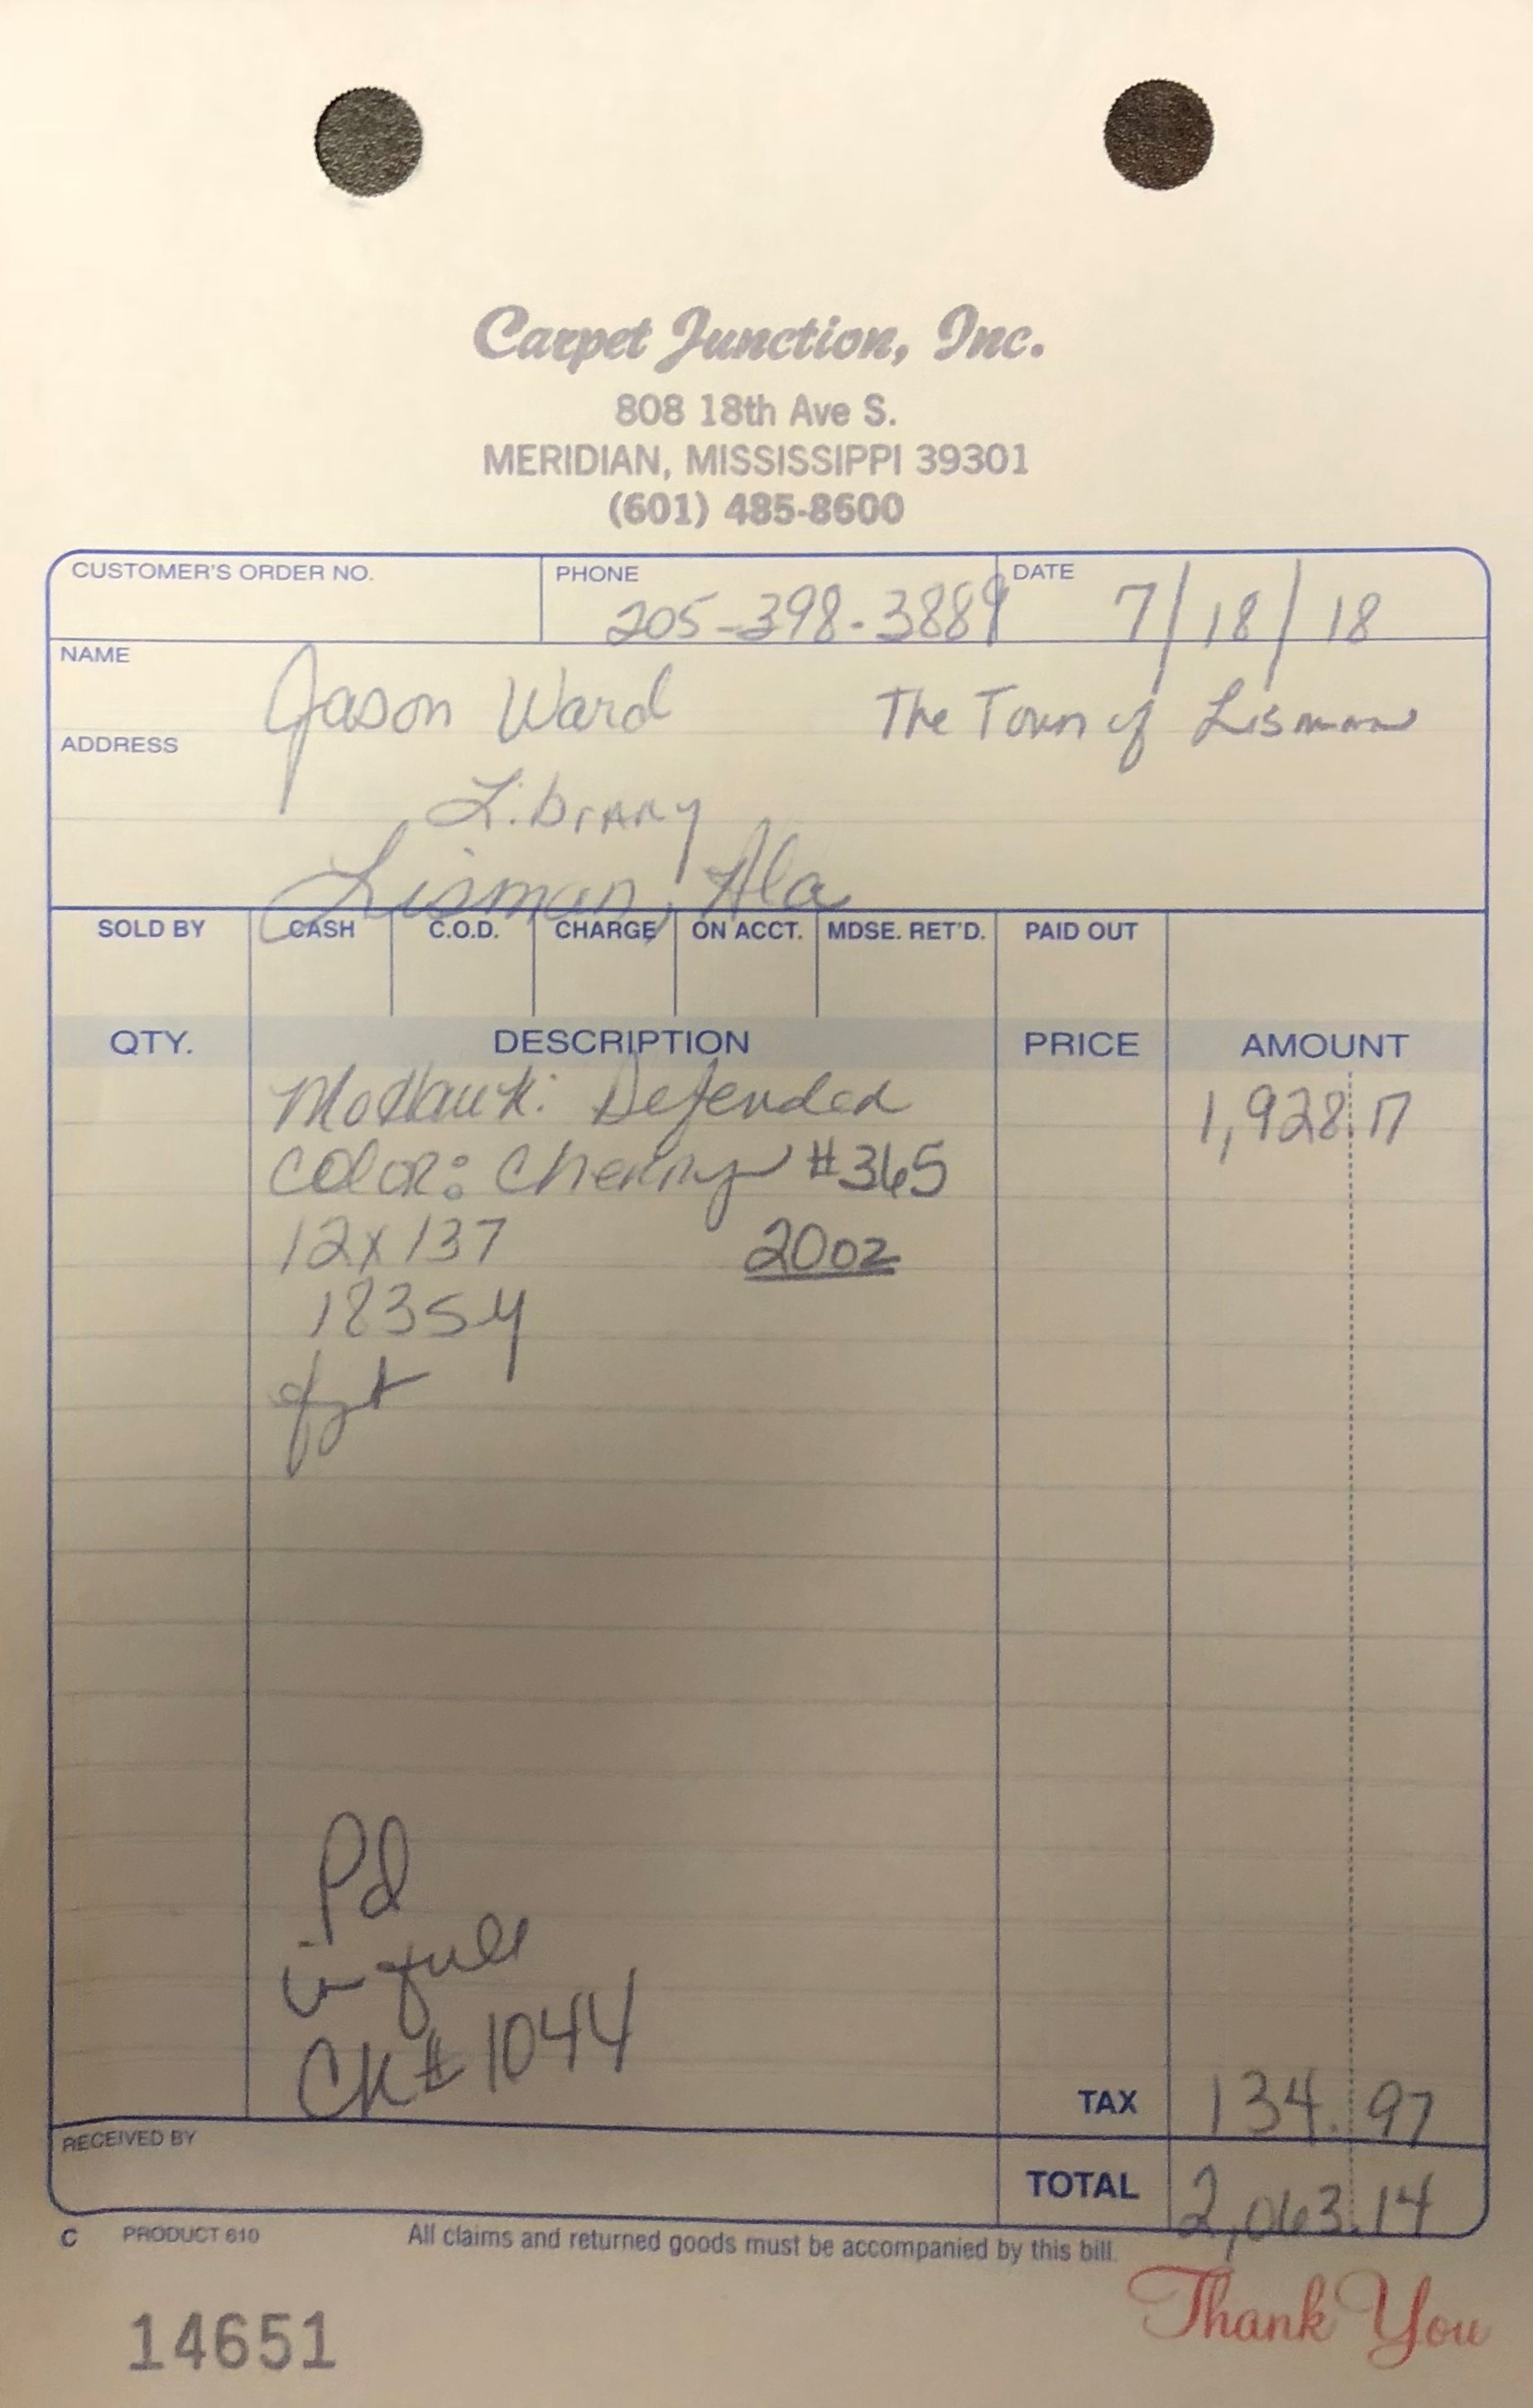 Carpet Junction, Inc.
808 18th Ave S.
MERIDIAN, MISSISSIPPI 39301
(601) 485-8600
CUSTOMER'S ORDER NO. PHONE 205-398-3889 DATE 7/18/18
NAME Jason Ward The Town of Lisman
ADDRESS Library
Lisman, Ala
SOLD BY CASH C.O.D. CHARGE ON ACCT. MDSE. RET'D. PAID OUT
QTY. DESCRIPTION PRICE AMOUNT
Mohawk: Defended 1,928.17
Color: Cherry #365
12x137 20oz
183SY
fgt
Pd
in full
CK# 1044
TAX 134.97
RECEIVED BY
TOTAL 2,063.14
C PRODUCT 610 All claims and returned goods must be accompanied by this bill.
14651 Thank You